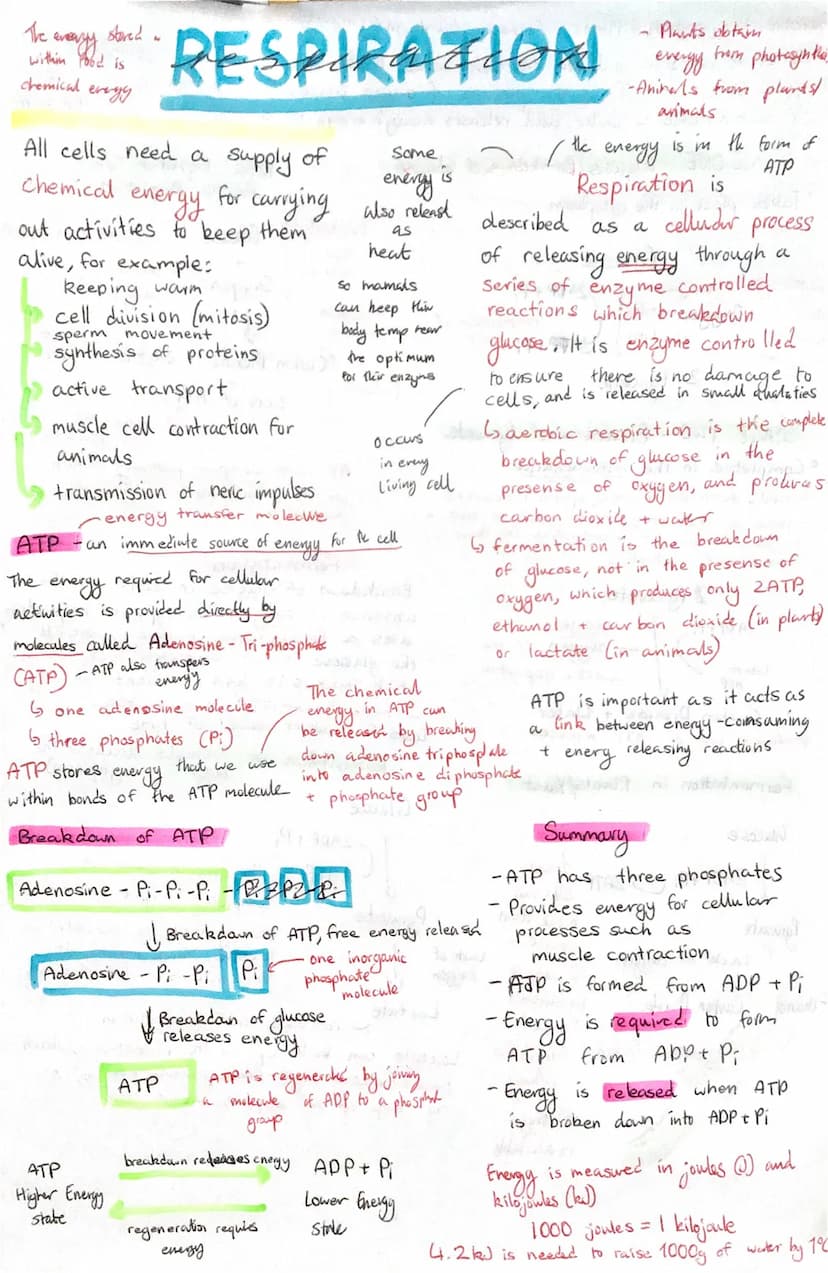 The energy stored
within food is
chemical energy
RESPIRATION
respiration
- Plants obtain
energy from photosynthe
- Animals from plants/
animals
All cells need a supply of
chemical energy for carrying
out activities to keep them
alive, for example:
keeping warm
cell division (mitosis)
sperm movement
synthesis of proteins
active transport
muscle cell contraction for
animals
transmission of neric impulses
some
energy is
also releasd
as
heat
so mamals
can keep thir
body temp near
the optimum
for their enzyms
occurs
in every
living cell
the energy is in th form of
ATP
Respiration is
described as a cellular process
of releasing energy through a
series of enzyme controlled
reactions which breakdown
glucose. It is enzyme controlled
to ensure there is no damage to
cells, and is released in small
↳ aerobic respiration is the complete
breakdown of glucose in the
presense of oxygen, and produces
carbon dioxide + water
↳ fermentation is the breakdown
of glucose, not in the presense of
oxygen, which produces only 2ATP,
ethanol + carbon dioxide (in plants)
or lactate (in animals)
energy transfer molecule
ATP - an immediate source of energy for the cell
The energy required for cellular
activities is provided directly by
molecules called Adenosine - Tri-phosphate
(ATP) - ATP also transfers
energy
↳ one adenosine molecule
↳ three phosphates (Pi)
ATP stores energy that we use
within bonds of the ATP molecule
The chemical
energy in ATP can
be released by breaking
down adenosine triphosphate
into adenosine diphosphate
+ phosphate group
ATP is important as it acts as
a link between energy-comsuming
+ energy releasing reactions
Breakdown of ATP
Adenosine - Pi - Pi - Pi
↓ Breakdown of ATP, free energy released
Adenosine - Pi - Pi Pi
one inorganic
phosphate
molecule
↓ Breakdown of glucose
releases energy
ATP
ATP is regenerated by joining
a molecule of ADP to a phosphat
group
ATP
Higher Energy
state
breakdown releases energy
regeneration requires
energy
ADP + Pi
Lower Energy
State
Summary
- ATP has three phosphates
- Provides energy for cellular
processes such as
muscle contraction
- ATP is formed from ADP + Pi
- Energy is required to form
ATP from ADP + Pi
- Energy is released when ATP
is broken down into ADP + Pi
Energy is measured in joules (J) and
kilojoules (kJ)
1000 joules = 1 kilojoule
4.2kJ is needed to raise 1000g of water by 1°C